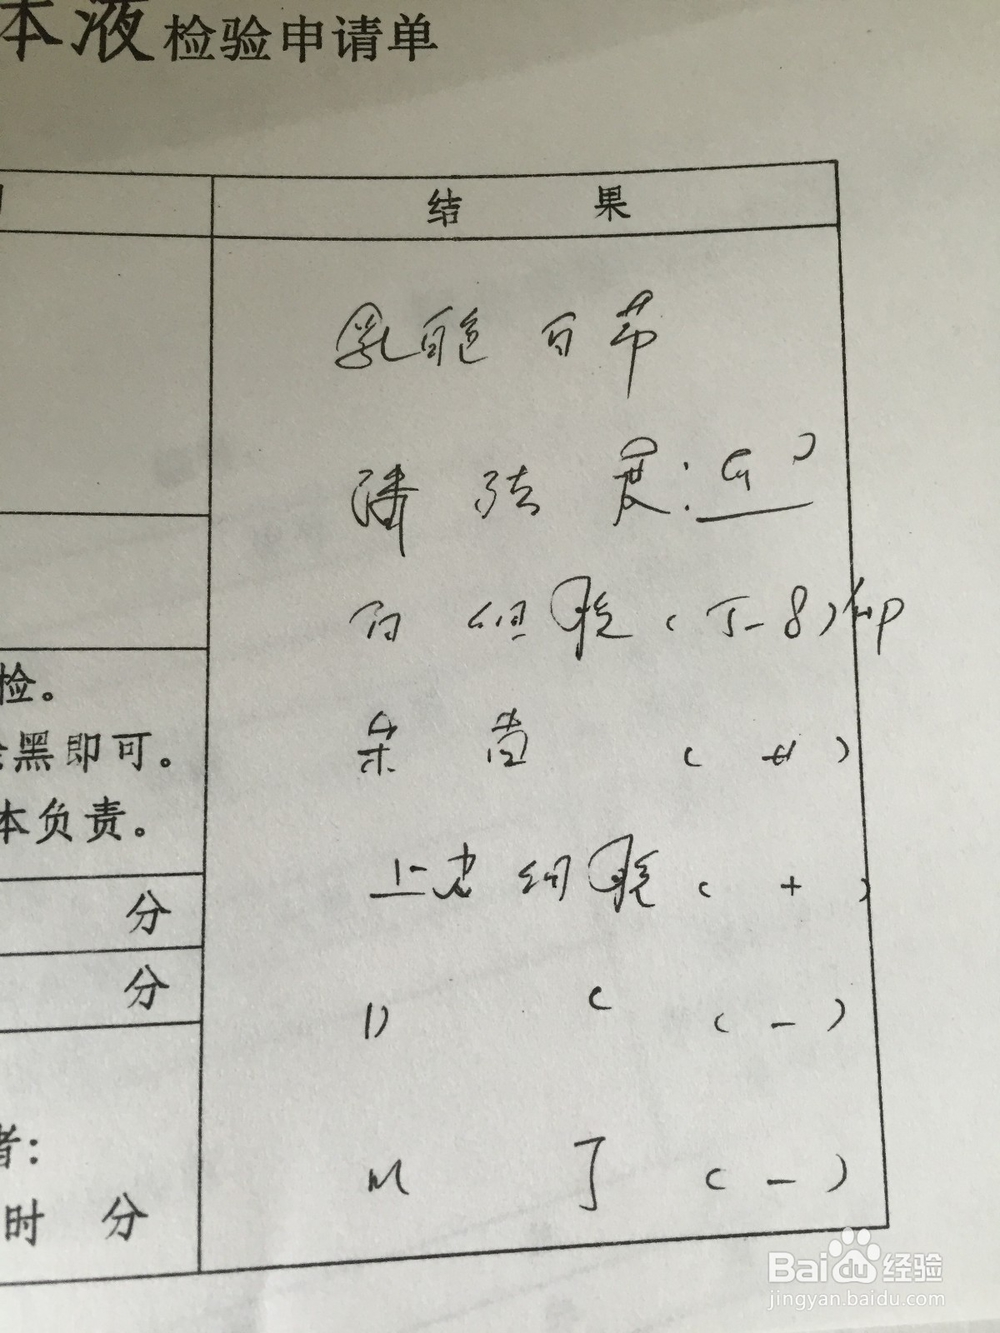 本液检验申请单
结 果
乳白色 白带
清洁度:
白细胞(5-8)/HP
杂菌 (++)
检。
黑即可。
本负责。
上皮细胞(+)
分
分
(-)
者:
时 分
(-)
Baidu经验
jingyan.baidu.com